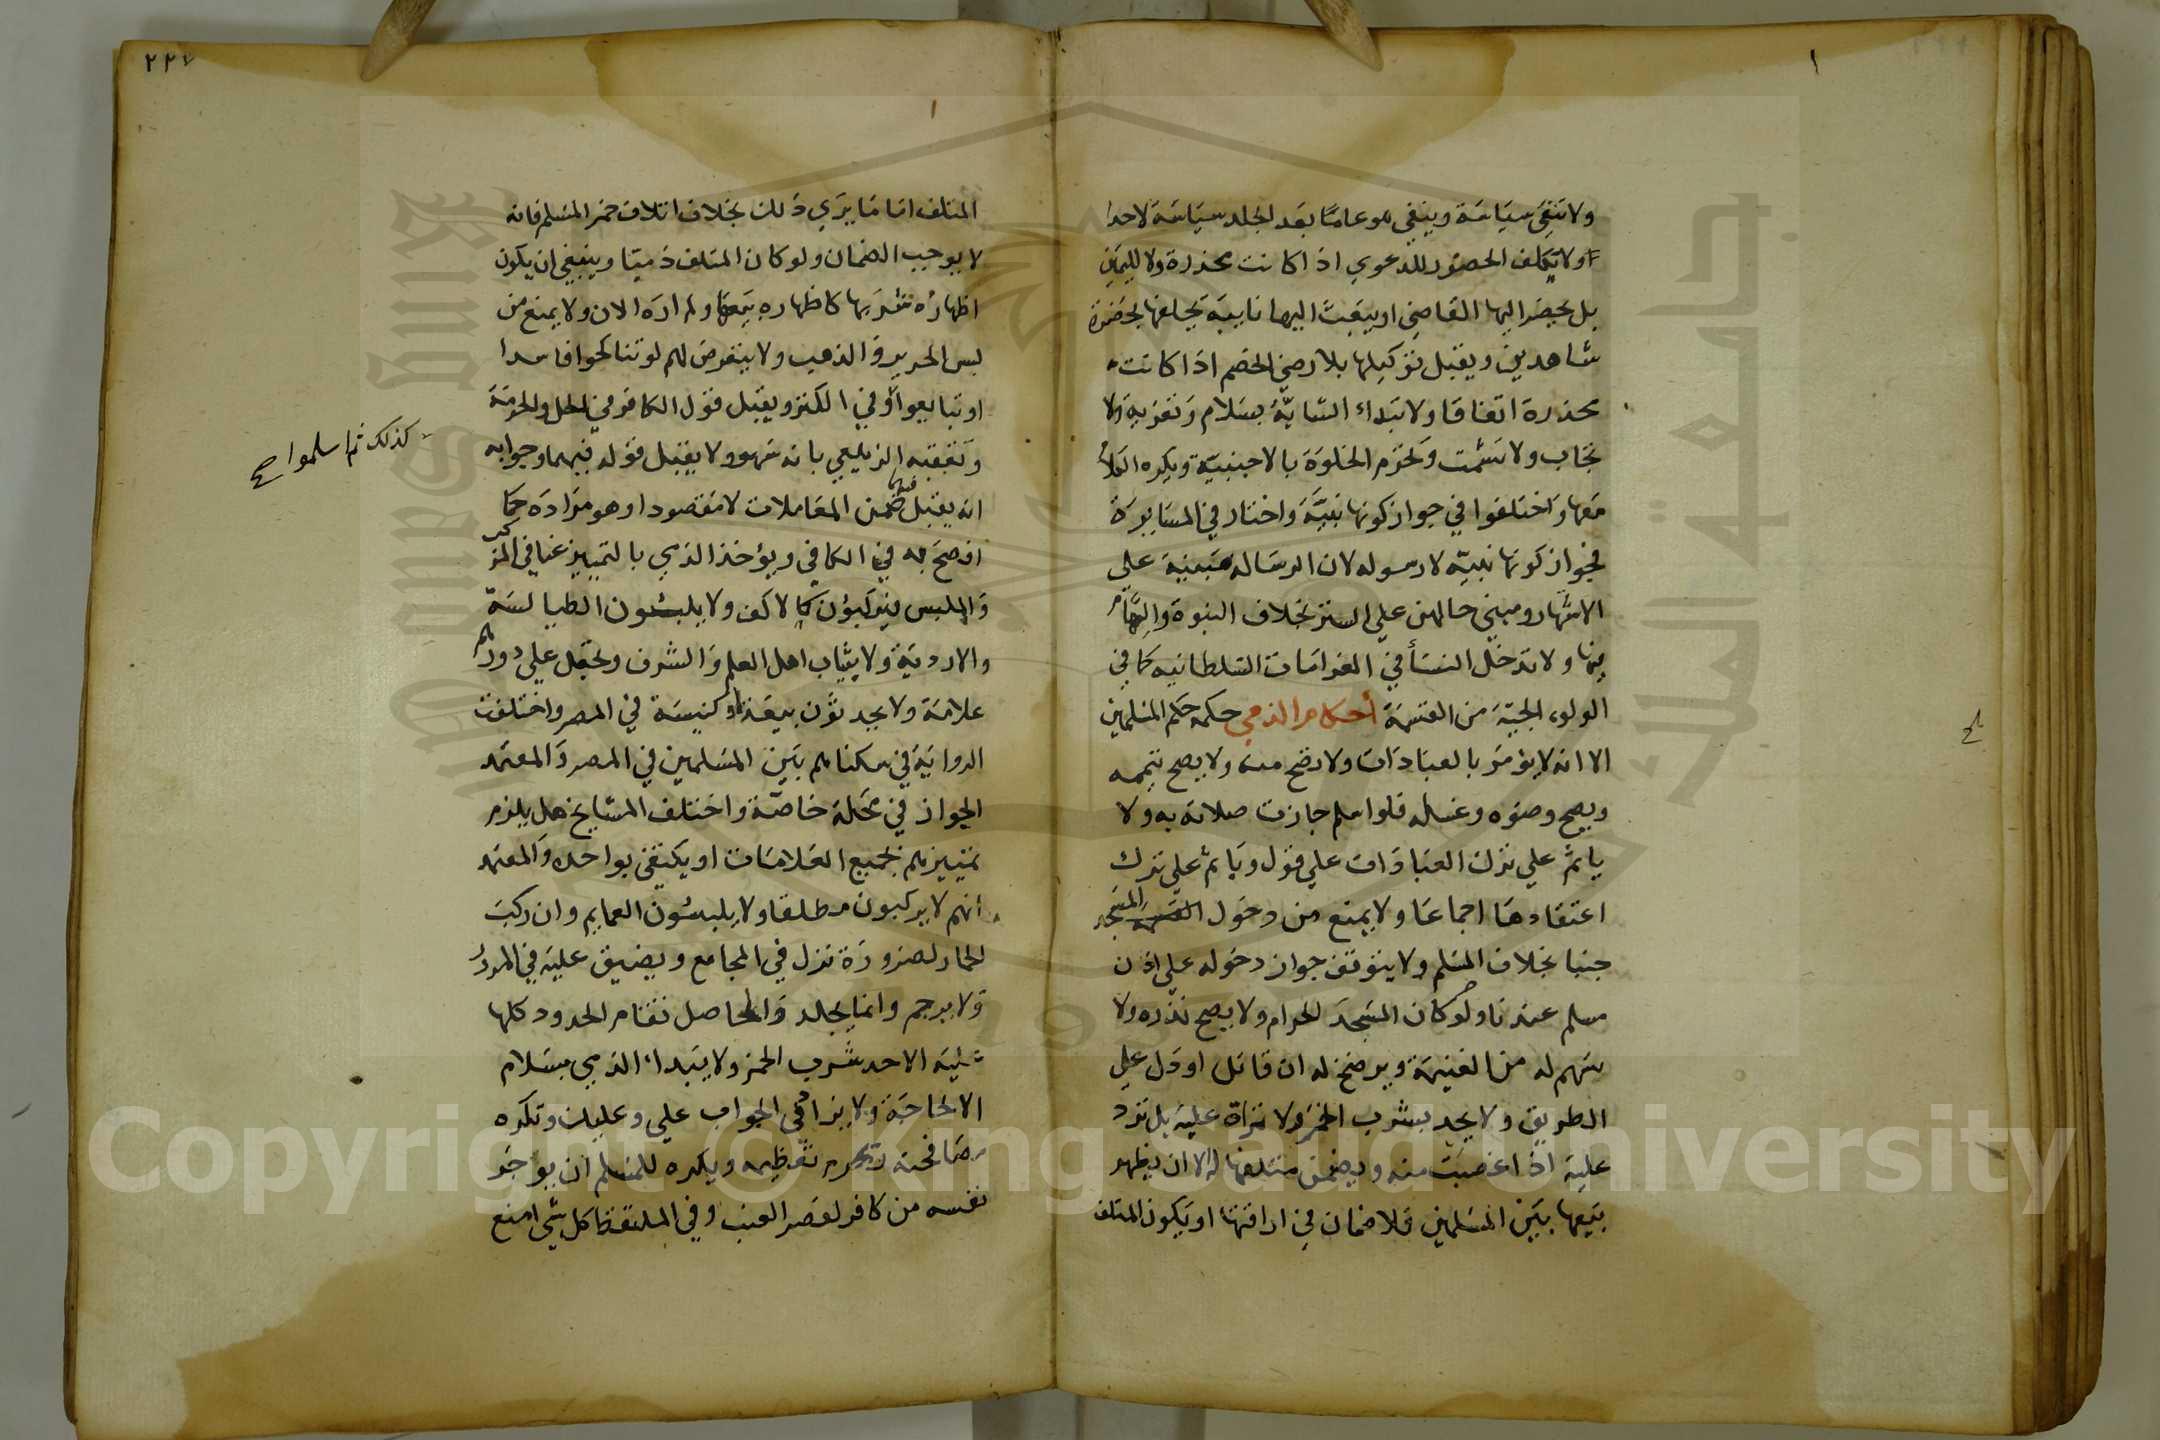 ولا تنفى سياسة وينفي هو عاما بعد الجلد سياسة لا حدا
ولا يكلف الحضور للدعوي اذا كانت مخدرة ولا لليمين
بل يحضر اليها القاضي او يبعث اليها نايبه يحلفها بحضرة
شاهدين ويقبل توكيلها بلا رضي الخصم اذا كانت
مخدرة اتفاقا ولا تبداء الشابة بسلام وتعزية ولا
تجاب ولا تشمت وتحرم الخلوة بالاجنبية ويكره الكلام
معها واختلفوا في جواز كونها نبية واختار في المسايرة
جواز كونها نبية لا رسولة لان الرسالة مبنية علي
الاشتهار ومبني حالهن علي الستر بخلاف النبوة والتمام
فيها ولا تدخل النسأ في الغرامات السلطانيه كما في
الولوالجية من القسمة أحكام الذمي حكمه حكم المسلمين
الا انه لا يؤمر بالعبادات ولا تصح منه ولا يصح تيممه
ويصح وضوه وغسله فلو اسلم جازت صلاته به ولا
ياثم علي ترك العبادات علي قول وياثم علي ترك
اعتقادها اجماعا ولا يمنع من دخول المسجد
جنبا بخلاف المسلم ولا يتوقف جواز دخوله علي اذن
مسلم عندنا ولو كان المسجد الحرام ولا يصح نذره ولا
سهم له من الغنيمة ويرضخ له ان قاتل او دل علي
الطريق ولا يحد بشرب الخمر ولا تراق عليه بل ترد
عليه اذا غصبت منه ويضمن متلفها له الا ان يظهر
بيعها بين المسلمين فلا ضمان في اراقتها او يكون المتلف
٢٢٧
المتلف اماما يري ذلك بخلاف اتلاف خمر المسلم فانه
لا يوجب الضمان ولو كان المتلف ذميا وينبغي ان يكون
اظهاره شربها كاظهاره بيعها ولم اره الان ولا يمنع من
لبس الحرير والذهب ولا يتعرض لهم لو تناكحوا فاسدا
او تبايعوا وفي الكنز ويقبل قول الكافر في الحل والحرمة
كذلك ثم اسلموا صح
وتعقبه الزيلعي بانه سهو ولا يقبل قوله فيهما وجوابه
انه يقبل فيهما ضمن المعاملات لا مقصودا وهو مراده كما
افصح به في الكافي ويؤخذ الذمي بالتمييز عنا في المركب
والملبس فيركبون كالاكف ولا يلبسون الطيالسة
والاردية ولا ثياب اهل العلم والشرف وتجعل علي دورهم
علامة ولا يحدثون بيعة او كنيسة في المصر واختلفت
الرواية في سكناهم بين المسلمين في المصر والمعتمد
الجواز في محلة خاصة واختلف المشايخ هل يلزم
تمييزهم بجميع العلامات او يكتفى بواحدة والمعتمد
انهم لا يركبون مطلقا ولا يلبسون العمايم وان ركب
الحمار لضرورة نزل في المجامع ويضيق عليه في المرور
ولا يرجم وانما يجلد والحاصل تقام الحدود كلها
عليه الا حد شرب الخمر ولا يبداء الذمي بسلام
الا لحاجة ولا يزاد في الجواب علي وعليك وتكره
مصافحته ويحرم تعظيمه ويكره للمسلم ان يواجر
نفسه من كافر لعصر العنب وفي الملتقط كل شي امنع